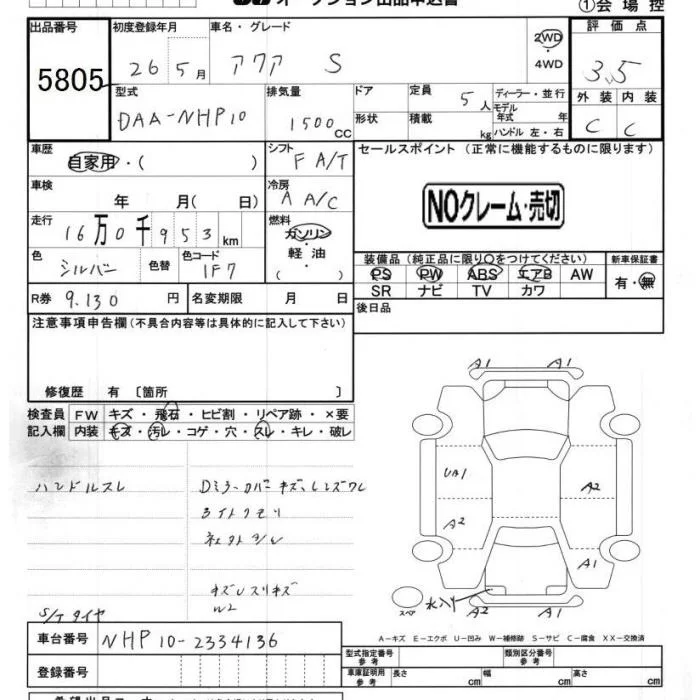 オークション出品申込書
①会場控
出品番号 初度登録年月 車名・グレード 評価点
5805 26 5月 アクア S 2WD 4WD 3.5
型式 排気量 ドア 定員 ディーラー・並行 外装 内装
DAA-NHP10 1500cc 5人 モデル年式 年式
形状 積載 kg ハンドル 左・右 C C
車歴 シフト セールスポイント (正常に機能するものに限ります)
自家用・( ) F A/T
車検 冷房
年 月( 日) A A/C
NOクレーム・売切
走行 燃料
16万0千953km ガソリン・軽油( )
色 色替 色コード 装備品 (純正品に限り○をつけてください) 新車保証書
シルバー 1F7 PS PW ABS エアB AW 有・無
R券 9.130円 名変期限 月 日 SR ナビ TV カワ
注意事項申告欄 (不具合内容等は具体的に記入して下さい) 後日品
修復歴 有 〔箇所 〕
A1 A1
検査員 FW キズ・飛石・ヒビ割・リペア跡・×要
記入欄 内装 キズ・汚レ・コゲ・穴・スレ・キレ・破レ
UA1
ハンドルスレ Dミラーカバーキズ、レンズワレ A2
ライトクモリ A2
A1
キズ、スリキズ
W2
スペア A2 A1
S/Tタイヤ
A−キズ E−エクボ U−凹み W−補修跡 S−サビ C−腐食 XX−交換済
車台番号 NHP10-2334136
型式指定番号 参考 類別区分番号 参考
登録番号 車庫証明用 参考 長さ cm 幅 cm 高さ cm